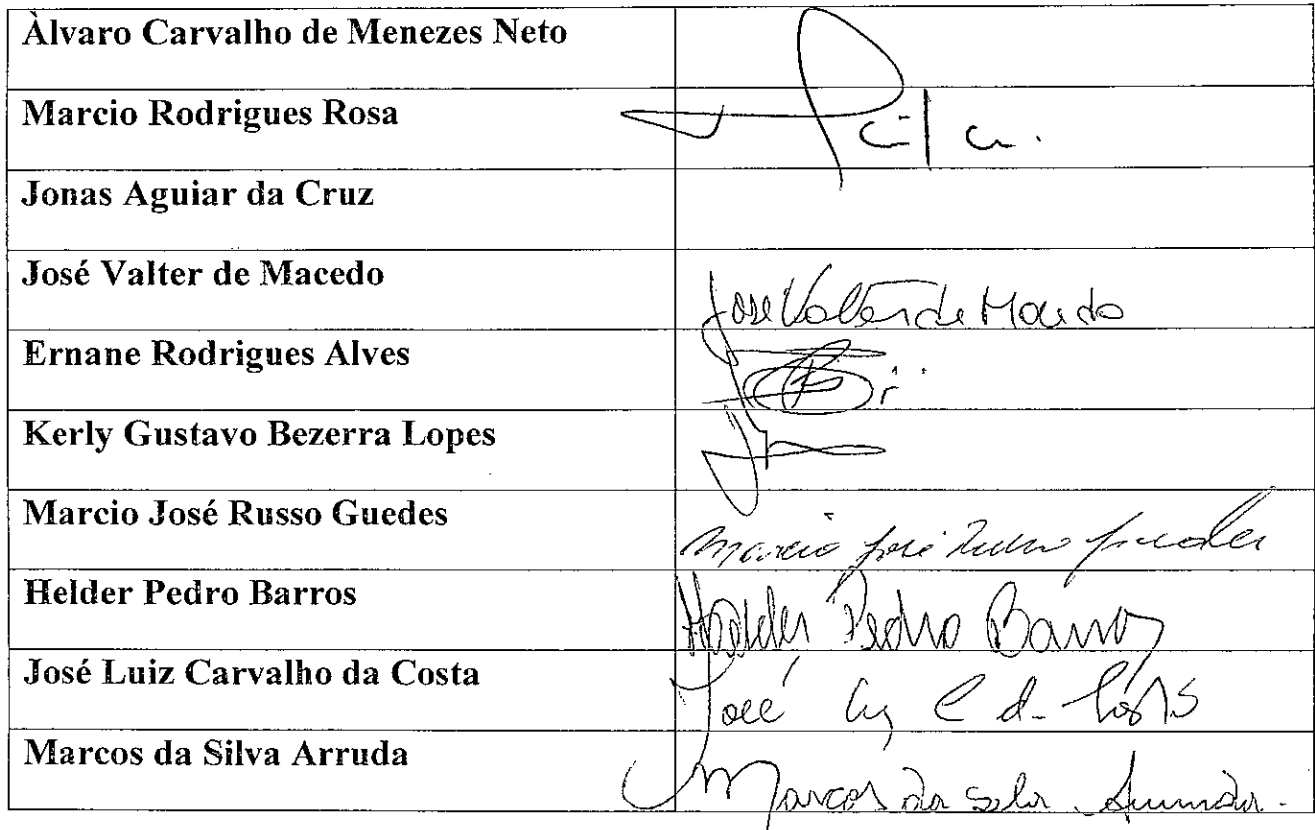 Àlvaro Carvalho de Menezes Neto
Marcio Rodrigues Rosa
Jonas Aguiar da Cruz
José Valter de Macedo José Valter de Macedo
Ernane Rodrigues Alves
Kerly Gustavo Bezerra Lopes
Marcio José Russo Guedes Marcio José Russo Guedes
Helder Pedro Barros Helder Pedro Barros
José Luiz Carvalho da Costa José Luiz C da Costa
Marcos da Silva Arruda Marcos da Silva Arruda